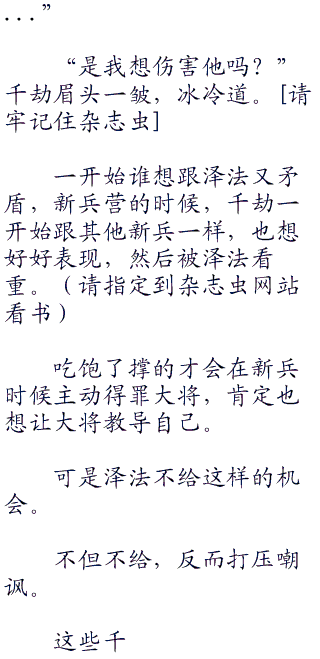 ...”
“是我想伤害他吗？”
千劫眉头一皱，冰冷道。[请
牢记住杂志虫]
一开始谁想跟泽法又矛
盾，新兵营的时候，千劫一
开始跟其他新兵一样，也想
好好表现，然后被泽法看
重。（请指定到杂志虫网站
看书）
吃饱了撑的才会在新兵
时候主动得罪大将，肯定也
想让大将教导自己。
可是泽法不给这样的机
会。
不但不给，反而打压嘲
讽。
这些千